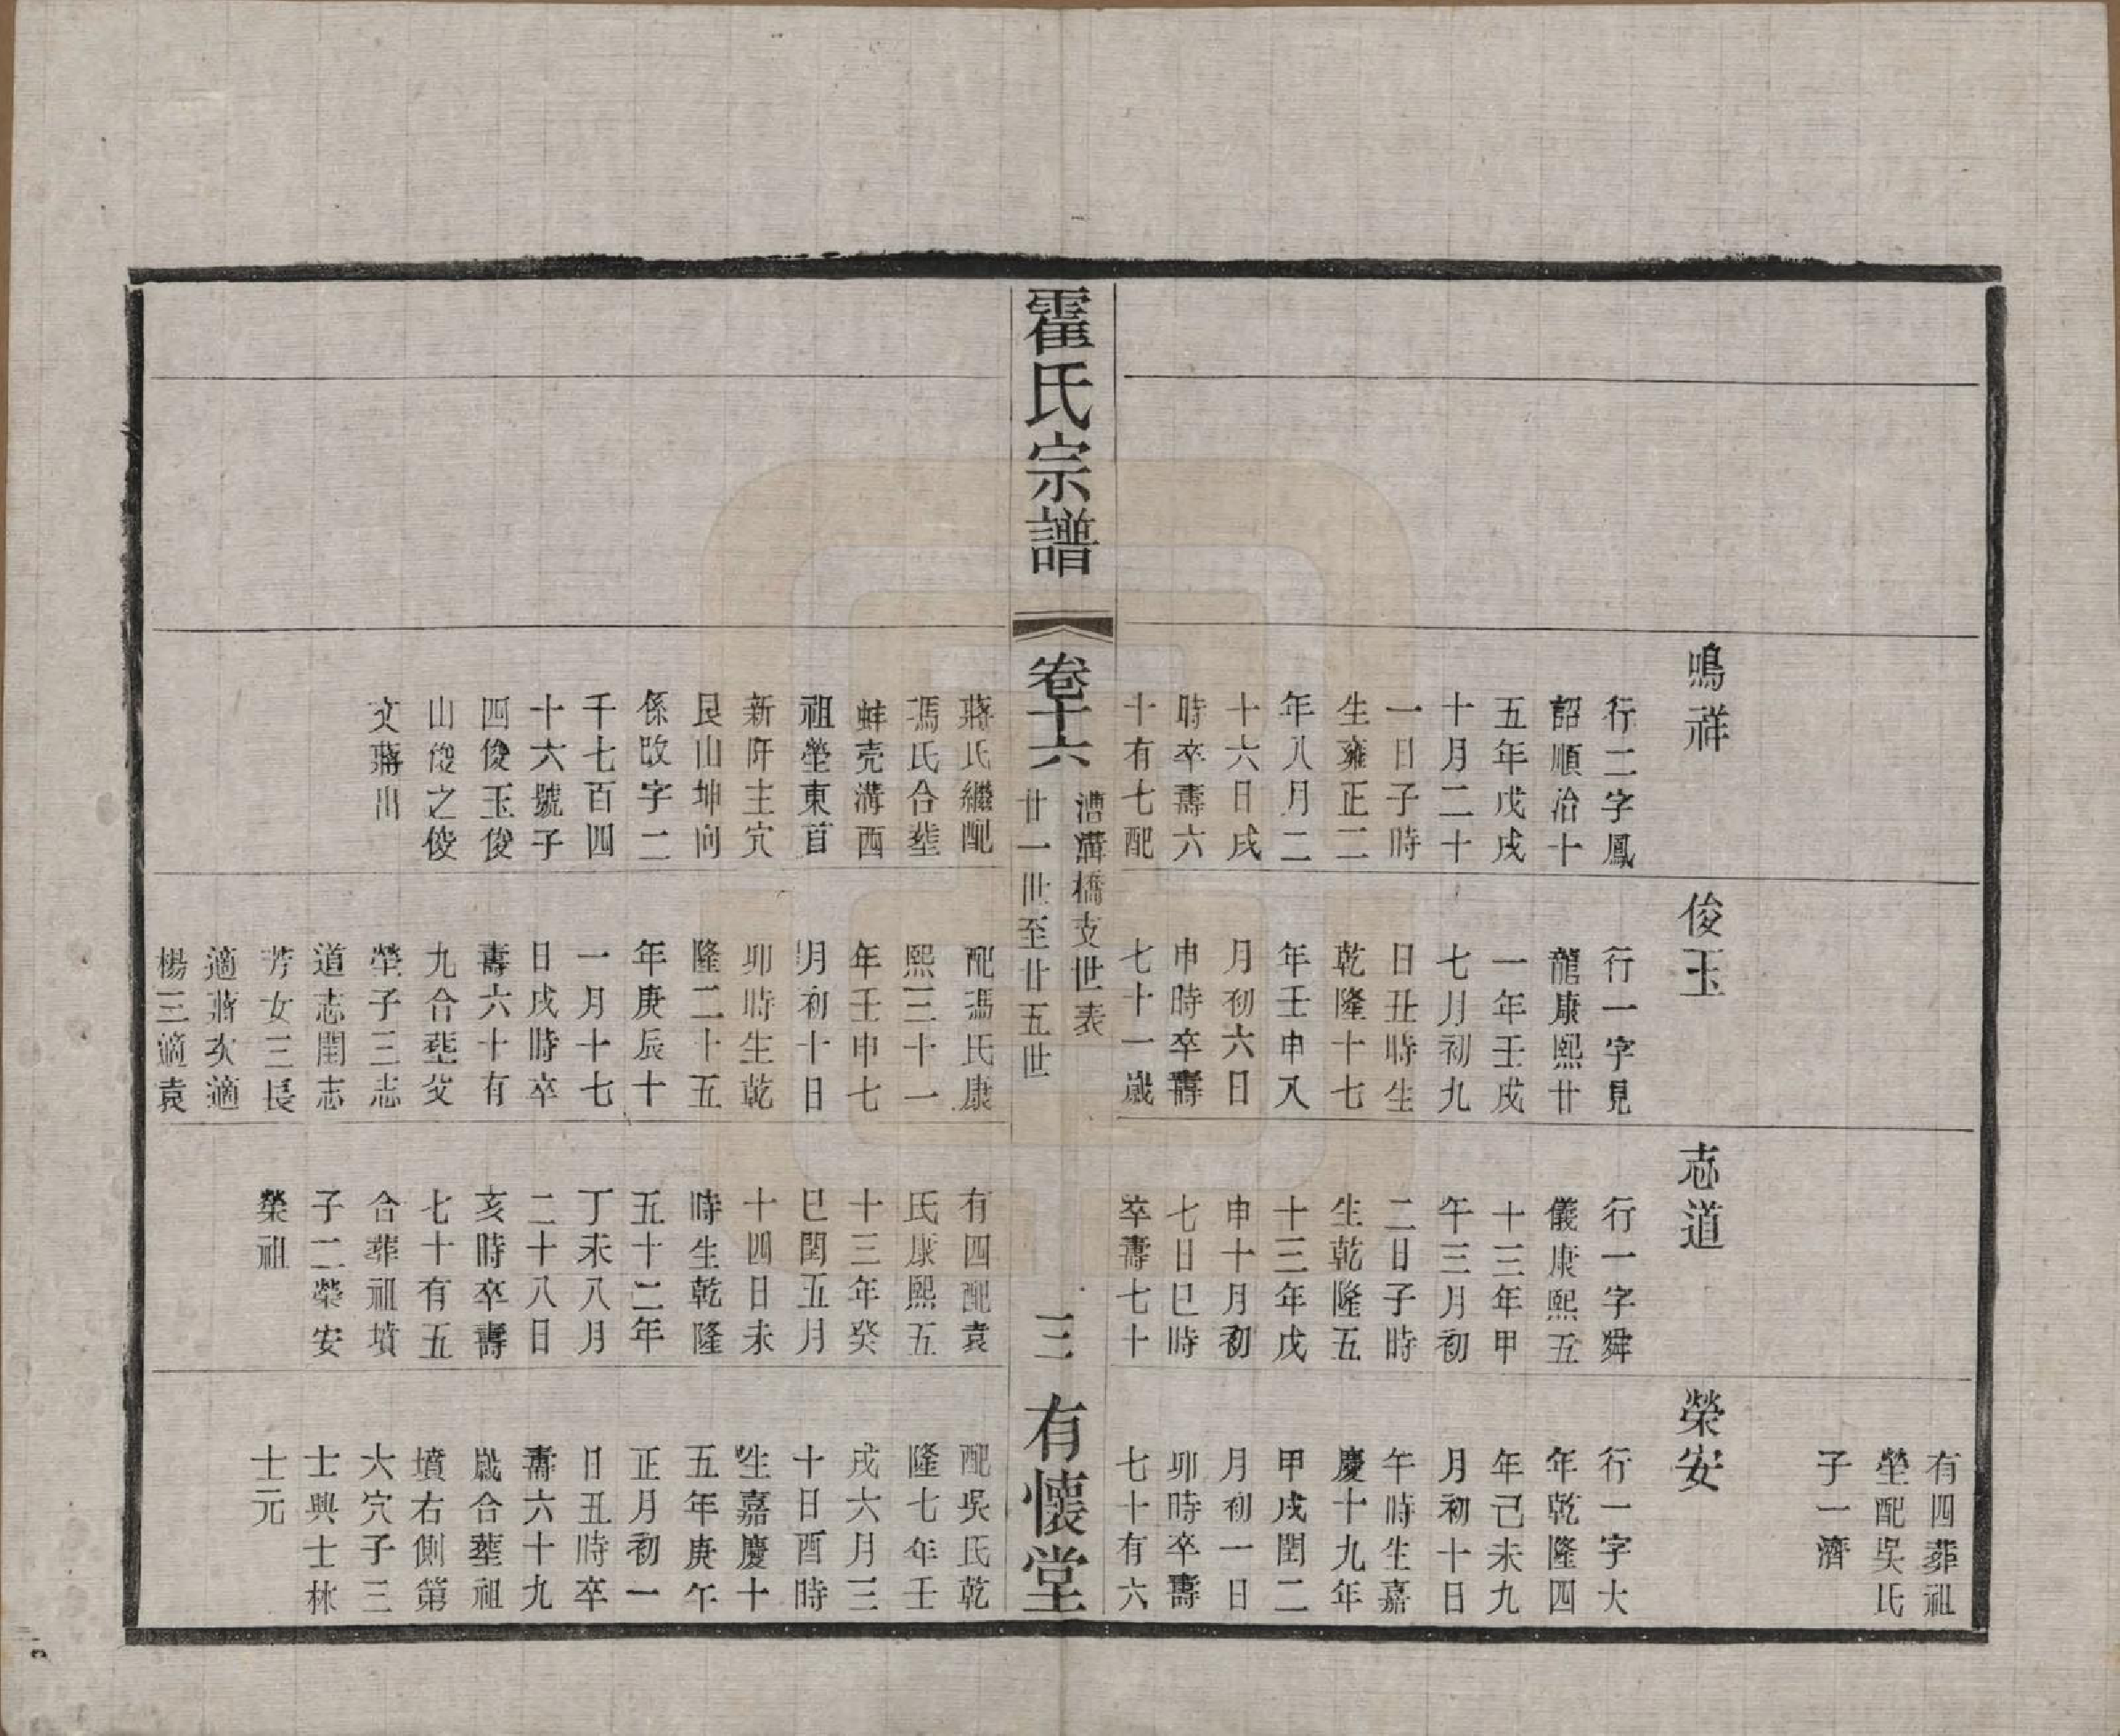 有四葬祖
塋配吳氏
子一濟
鳴祥
行二字鳳
韶順治十
五年戊戌
十月二十
一日子時
生雍正二
年八月二
十六日戌
時卒壽六
十有七配
俊玉
行一字見
龍康熙廿
一年壬戌
七月初九
日丑時生
乾隆十七
年壬申八
月初六日
申時卒壽
七十一歲
志道
行一字舜
儀康熙五
十三年甲
午三月初
二日子時
生乾隆五
十三年戊
申十月初
七日巳時
卒壽七十
榮安
行一字大
年乾隆四
年己未九
月初十日
午時生嘉
慶十九年
甲戌閏二
月初一日
卯時卒壽
七十有六
霍氏宗譜
卷十六
漕溝橋支世表
廿一世至廿五世
三
有懷堂
蔣氏繼配
馮氏合塟
蚌壳溝西
祖塋東首
新阡主穴
艮山坤向
係改字二
千七百四
十六號子
四俊玉俊
山俊之俊
文蔣出
配馮氏康
熙三十一
年壬申七
月初十日
卯時生乾
隆二十五
年庚辰十
一月十七
日戌時卒
壽六十有
九合塟父
塋子三志
道志閏志
芳女三長
適蔣次適
楊三適袁
有四配袁
氏康熙五
十三年癸
巳閏五月
十四日未
時生乾隆
五十二年
丁未八月
二十八日
亥時卒壽
七十有五
合葬祖墳
子二榮安
榮祖
配吳氏乾
隆七年壬
戌六月三
十日酉時
生嘉慶十
五年庚午
正月初一
日丑時卒
壽六十九
歲合葬祖
墳右側第
六穴子三
士興士林
士元